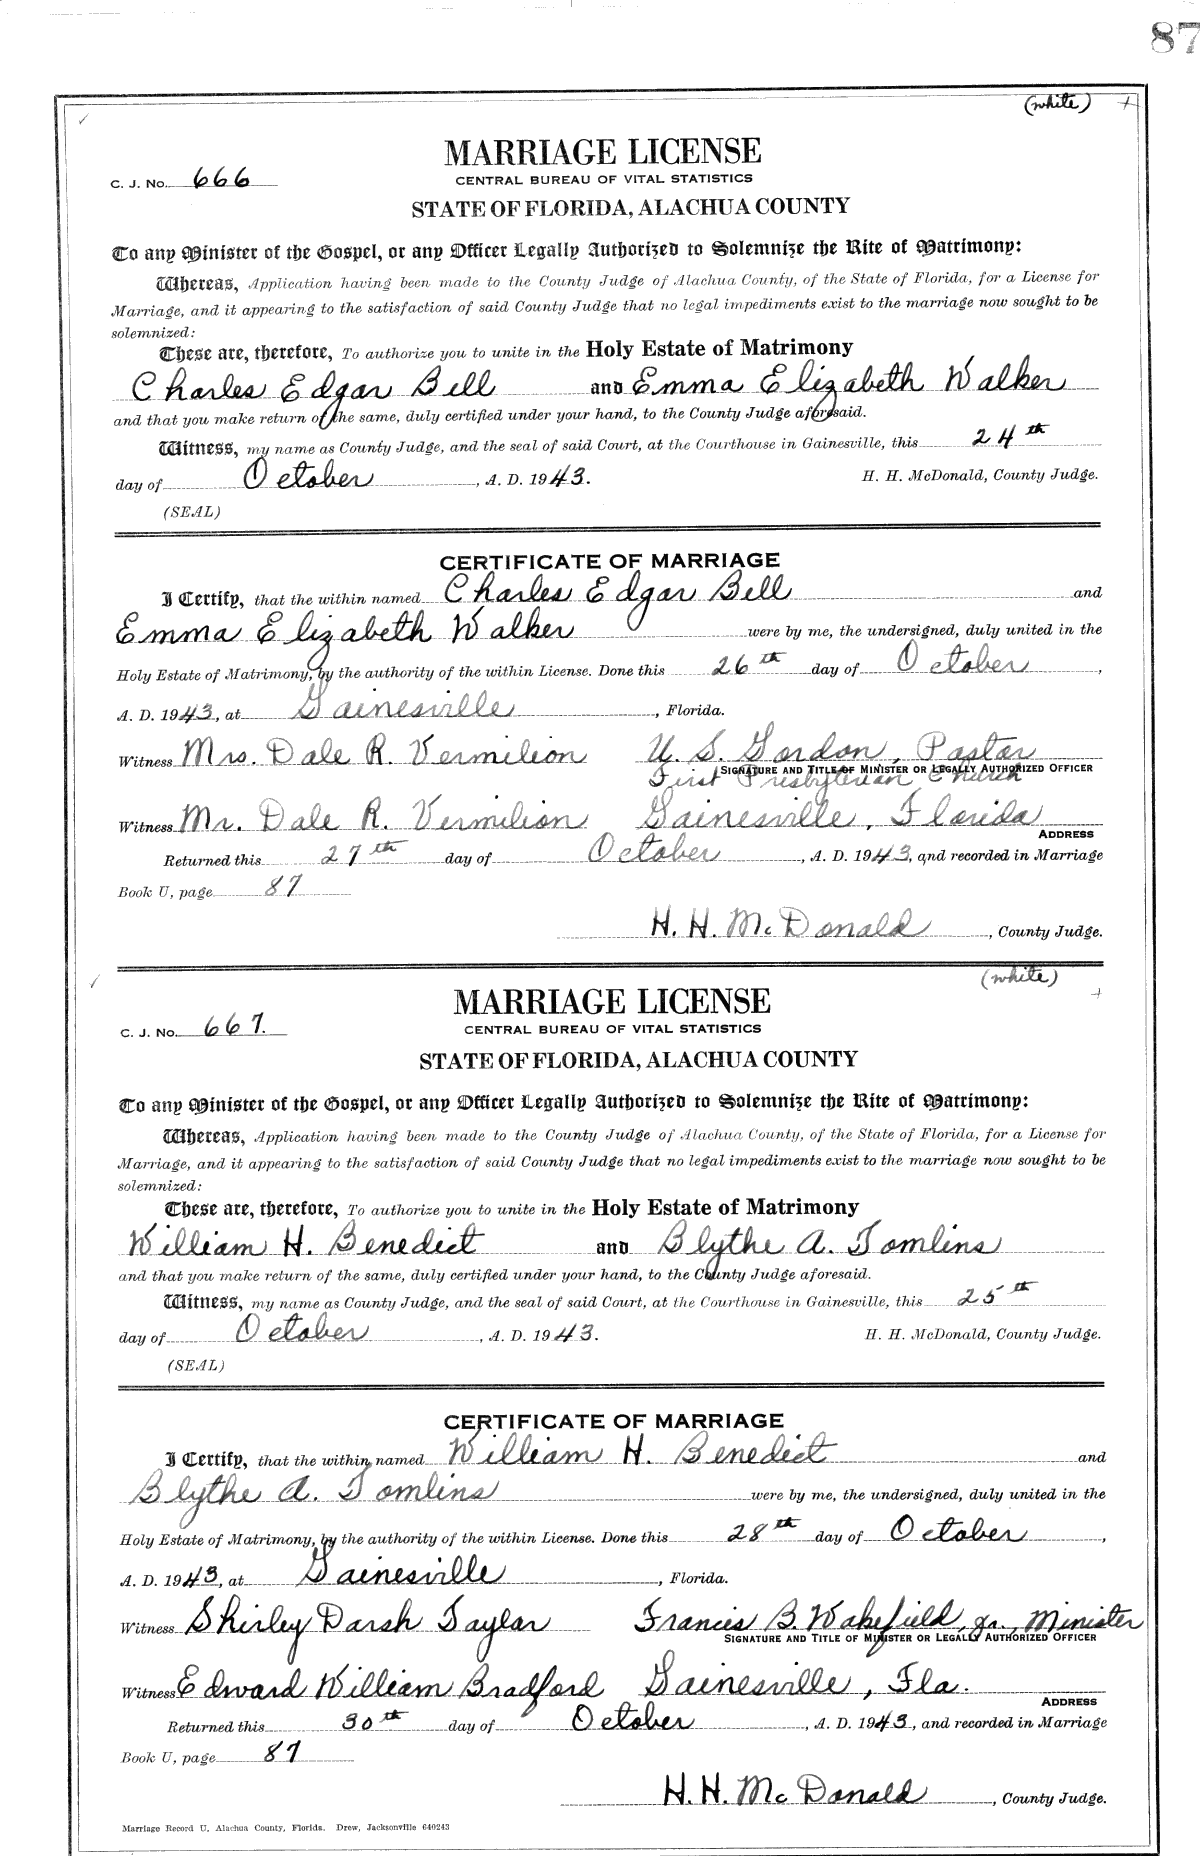 87
(white) +
MARRIAGE LICENSE
C. J. No. 666
CENTRAL BUREAU OF VITAL STATISTICS
STATE OF FLORIDA, ALACHUA COUNTY
To any Minister of the Gospel, or any Officer Legally Authorized to Solemnize the Rite of Matrimony:
Whereas, Application having been made to the County Judge of Alachua County, of the State of Florida, for a License for
Marriage, and it appearing to the satisfaction of said County Judge that no legal impediments exist to the marriage now sought to be
solemnized:
These are, therefore, To authorize you to unite in the Holy Estate of Matrimony
Charles Edgar Bell and Emma Elizabeth Walker
and that you make return of the same, duly certified under your hand, to the County Judge aforesaid.
Witness, my name as County Judge, and the seal of said Court, at the Courthouse in Gainesville, this 24th
day of October, A. D. 1943. H. H. McDonald, County Judge.
(SEAL)
CERTIFICATE OF MARRIAGE
I Certify, that the within named Charles Edgar Bell and
Emma Elizabeth Walker were by me, the undersigned, duly united in the
Holy Estate of Matrimony, by the authority of the within License. Done this 26th day of October,
A. D. 1943, at Gainesville, Florida.
Witness Mrs. Dale R. Vermilion U. S. Gordon, Pastor
SIGNATURE AND TITLE OF MINISTER OR LEGALLY AUTHORIZED OFFICER
First Presbyterian Church
Witness Mr. Dale R. Vermilion Gainesville, Florida
ADDRESS
Returned this 27th day of October, A. D. 1943, and recorded in Marriage
Book U, page 87
H. H. McDonald, County Judge.
(white)
+
MARRIAGE LICENSE
C. J. No. 667.
CENTRAL BUREAU OF VITAL STATISTICS
STATE OF FLORIDA, ALACHUA COUNTY
To any Minister of the Gospel, or any Officer Legally Authorized to Solemnize the Rite of Matrimony:
Whereas, Application having been made to the County Judge of Alachua County, of the State of Florida, for a License for
Marriage, and it appearing to the satisfaction of said County Judge that no legal impediments exist to the marriage now sought to be
solemnized:
These are, therefore, To authorize you to unite in the Holy Estate of Matrimony
William H. Benedict and Blythe A. Tomlins
and that you make return of the same, duly certified under your hand, to the County Judge aforesaid.
Witness, my name as County Judge, and the seal of said Court, at the Courthouse in Gainesville, this 25th
day of October, A. D. 1943. H. H. McDonald, County Judge.
(SEAL)
CERTIFICATE OF MARRIAGE
I Certify, that the within named William H. Benedict and
Blythe A. Tomlins were by me, the undersigned, duly united in the
Holy Estate of Matrimony, by the authority of the within License. Done this 28th day of October,
A. D. 1943, at Gainesville, Florida.
Witness Shirley Darsh Taylor Francis B. Wakefield, Jr., Minister
SIGNATURE AND TITLE OF MINISTER OR LEGALLY AUTHORIZED OFFICER
Witness Edward William Bradford Gainesville, Fla.
ADDRESS
Returned this 30th day of October, A. D. 1943, and recorded in Marriage
Book U, page 87
H. H. McDonald, County Judge.
Marriage Record U, Alachua County, Florida. Drew, Jacksonville 640243